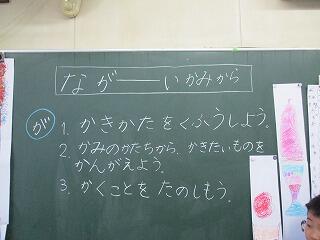 なが——いかみから
が
1. かきかたをくふうしよう。
2. かみのかたちから、かきたいものを
かんがえよう。
3. かくことをたのしもう。